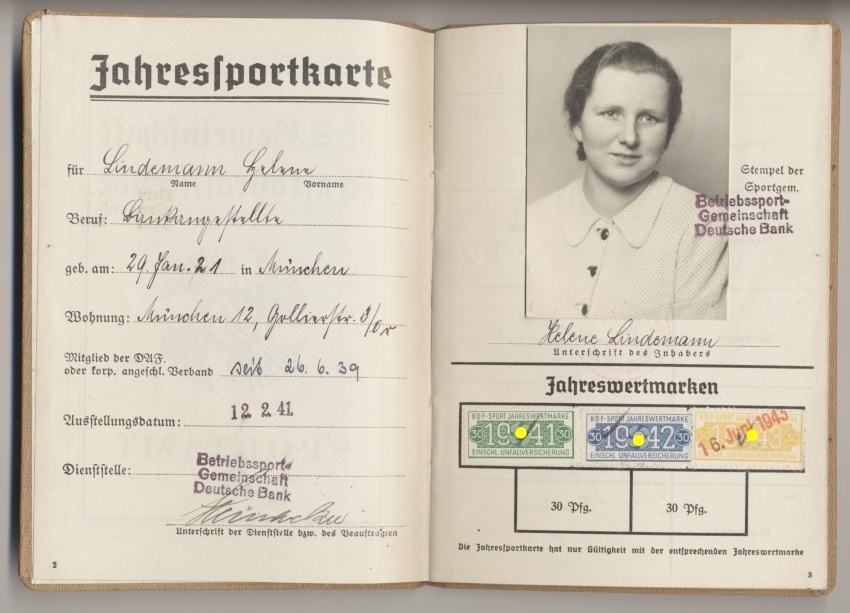 Jahressportkarte
für Lindemann Helene
Name Vorname
Beruf: Bankangestellte
geb. am: 29. Jan. 21 in München
Wohnung: München 12, Gollierstr. 3/0 r
Mitglied der DAF.
oder korp. angeschl. Verband seit 26. 6. 39
Ausstellungsdatum: 12. 2. 41.
Dienststelle: Betriebssport-
Gemeinschaft
Deutsche Bank
Unterschrift der Dienststelle bzw. des Beauftragten
2
Stempel der
Sportgem.
Betriebssport-
Gemeinschaft
Deutsche Bank
Helene Lindemann
Unterschrift des Inhabers
Jahreswertmarken
KDF-SPORT JAHRESWERTMARKE
30 1941 30
EINSCHL. UNFALLVERSICHERUNG
KDF-SPORT JAHRESWERTMARKE
30 1942 30
EINSCHL. UNFALLVERSICHERUNG
KDF-SPORT JAHRESWERTMARKE
43 30
EINSCHL. UNFALLVERSICHERUNG
16. Juni 1943
30 Pfg. 30 Pfg.
Die Jahressportkarte hat nur Gültigkeit mit der entsprechenden Jahreswertmarke
3